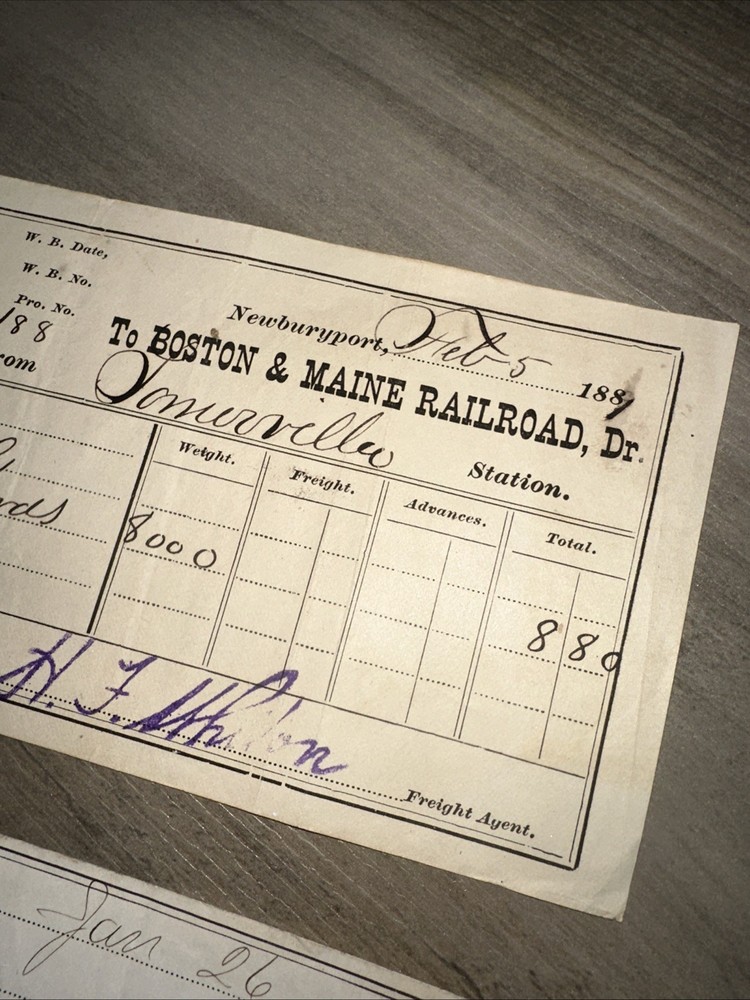 W. B. Date,
W. B. No.
Pro. No.
188
Newburyport, Feb 5 188
To BOSTON & MAINE RAILROAD, Dr.
Somerville Station.
Weight. Freight. Advances. Total.
8000
8 80
H. F.
Freight Agent.
Jan 26